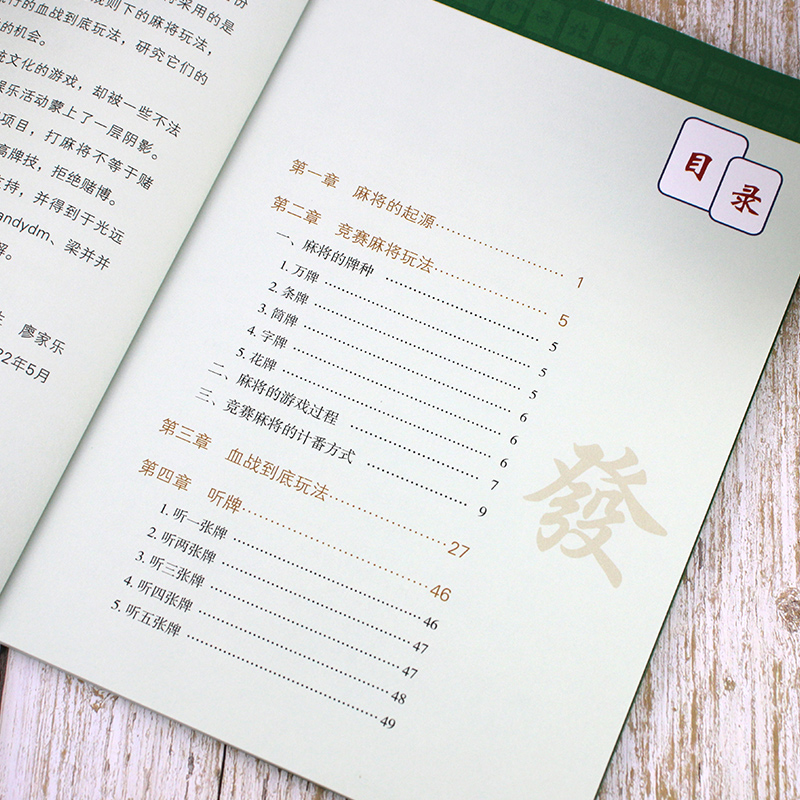 份
采用的是
规则下的麻将玩法，
行的血战到底玩法，研究它们的
的机会。
统文化的游戏，却被一些不法
娱乐活动蒙上了一层阴影。
项目，打麻将不等于赌
高牌技，拒绝赌博。
支持，并得到于光远
andydm、梁并并
解。
廖家乐
22年5月
目录
第一章 麻将的起源 1
第二章 竞赛麻将玩法 5
一、麻将的牌种 5
1. 万牌 5
2. 条牌 5
3. 筒牌 6
4. 字牌 6
5. 花牌 6
二、麻将的游戏过程 7
三、竞赛麻将的计番方式 9
第三章 血战到底玩法 27
第四章 听牌 46
1. 听一张牌 46
2. 听两张牌 47
3. 听三张牌 47
4. 听四张牌 48
5. 听五张牌 49
發